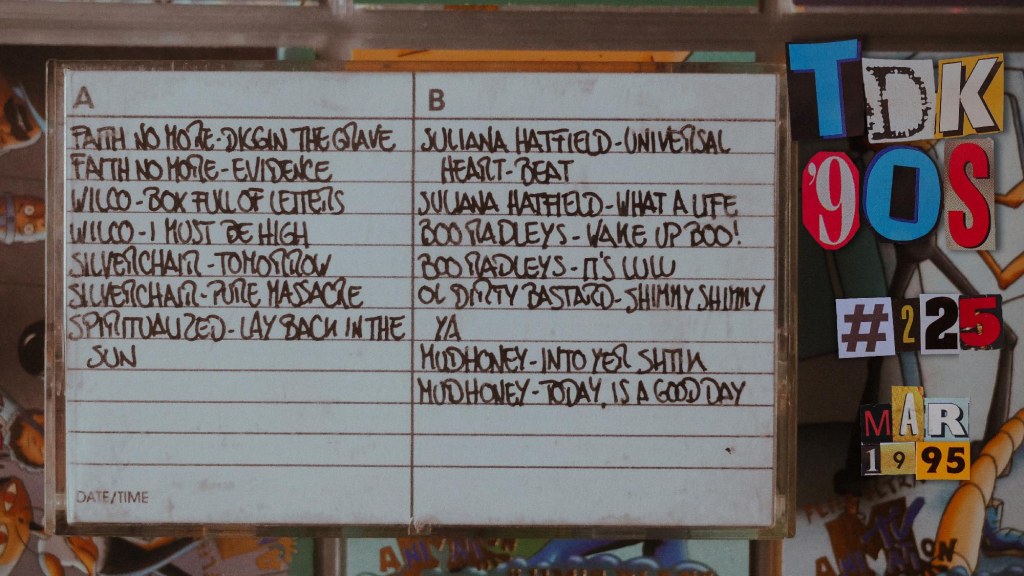 A
FAITH NO MORE-DIGGIN THE GRAVE
FAITH NO MORE-EVIDENCE
WILCO-BOX FULL OF LETTERS
WILCO-I MUST BE HIGH
SILVERCHAIR-TOMORROW
SILVERCHAIR-PURE MASACRE
SPIRITUALIZED-LAY BACK IN THE
SUN
DATE/TIME
B
JULIANA HATFIELD-UNIVERSAL
HEART-BEAT
JULIANA HATFIELD-WHAT A LIFE
BOO RADLEYS-WAKE UP BOO!
BOO RADLEYS-IT'S LULU
OL DIRTY BASTARD-SHIMMY SHIMMY
YA
MUDHONEY-INTO YER SHTIK
MUDHONEY-TODAY, IS A GOOD DAY
TDK
'90S
#225
MAR
1995
ON